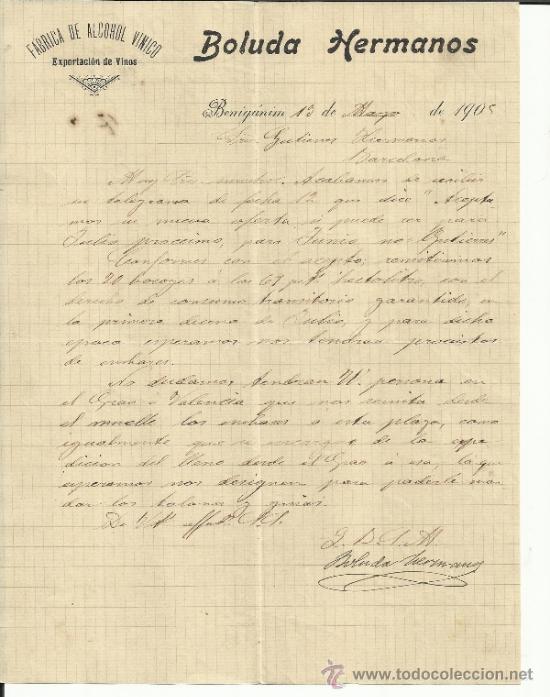 FÁBRICA DE ALCOHOL VINICO
Exportación de Vinos
Boluda Hermanos
Benigánim 13 de Mayo de 1905
Sres. Gutierrez Hermanos
Barcelona
Muy Sres. nuestros. Acabamos de recibir
su telegrama de fecha 12 que dice "Acepta
mos su nueva oferta si puede ser para
Julio proccimo, para Junio no = Gutierres"
Conformes con el acepto; remitiremos
los 20 bocoyes á los 69 pts. hectolitro, con el
derecho de consumo transitorio garantido, en
la primera decena de Julio, y para dicha
epoca esperamos nos tendran provistos
de embases.
No dudamos tendran Vs. persona en
el Grao ó Valencia que nos remita desde
el muelle los embases á esta plaza, como
igualmente que se encargue de la expe
dicion del lleno desde el Grao á esa, la que
esperamos nos designen para poderle man
dar los talones y guias.
De Vs. affmos. S.S.
Q. B. S. M.
Boluda Hermanos
todocoleccion
www.todocoleccion.net